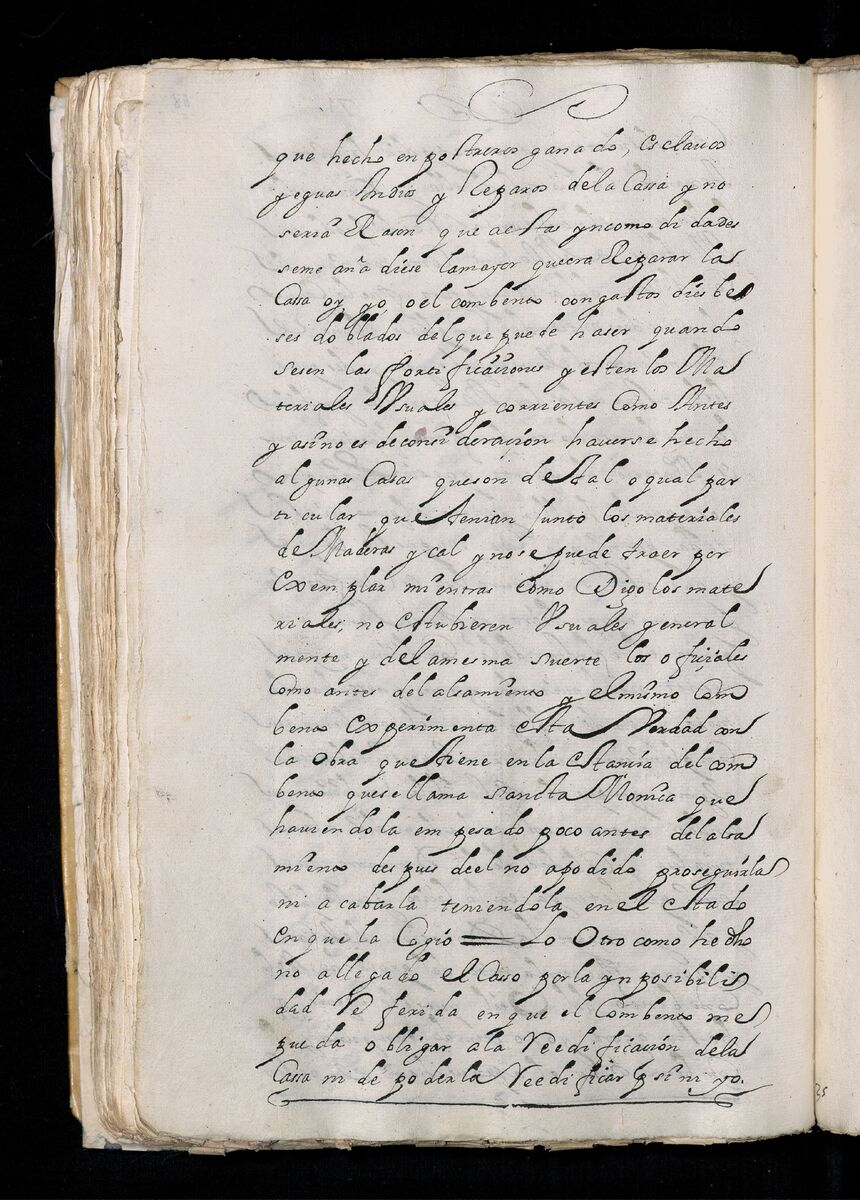 que hecho en postreros ganado, Esclavos
yeguas Indios y Reparos dela Cassa y no
seria Rason que aestas yncomodidades
seme aña diese lamayor quecra Reparar la
Cassa oy yo o el combento congastos dies be
ses doblados del que puede haser quando
sesen las fortificaciones y esten los Ma
teriales Usuales y corrientes Como Antes
y asino es deconsideraçion haverse hecho
algunas Casas queson de tal o qual par
ticular que tenian junto los materiales
de Maderas y cal y nose puede traer por
Exemplar mientras como Digo los mate
riales, no Estubieren Usuales general
mente y dela mesma suerte los ofiçiales
Como antes del alsamiento y el mismo Com
bento experimenta esta Verdad con
la obra que tiene en la Estancia del com
bento quese llama sancta Monica que
haviendola empesado poco antes del alsa
miento despues de el no apodido proseguirla
ni acabarla teniendola en el estado
en que la Cogió = Lo Otro como he dho
no allegado el Casso por la ynposibili
dad Referida en que el Combento me
pueda obligar ala Reedificación dela
Cassa ni de poderla Reedificar psi ni yo.
25